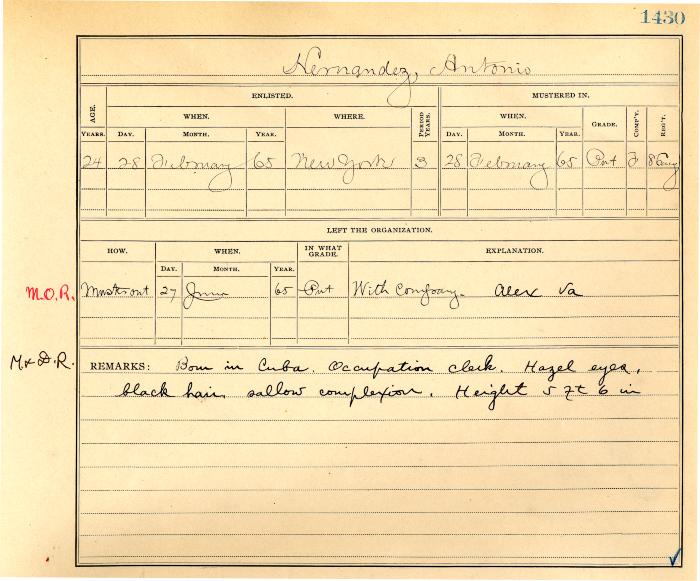 1430
Hernandez, Antonio
ENLISTED. MUSTERED IN.
AGE. WHEN. WHERE. PERIOD YEARS. WHEN. GRADE. COMP'Y. REG'T.
YEARS. DAY. MONTH. YEAR. DAY. MONTH. YEAR.
24 28 February 65 New York 3 28 February 65 Pvt 8
LEFT THE ORGANIZATION.
HOW. WHEN. IN WHAT GRADE. EXPLANATION.
DAY. MONTH. YEAR.
M.O.R. Must out 27 June 65 Pvt With Company. Alex Va
M & D.R. REMARKS: Born in Cuba. Occupation clerk. Hazel eyes,
black hair, sallow complexion. Height 5 ft 6 in